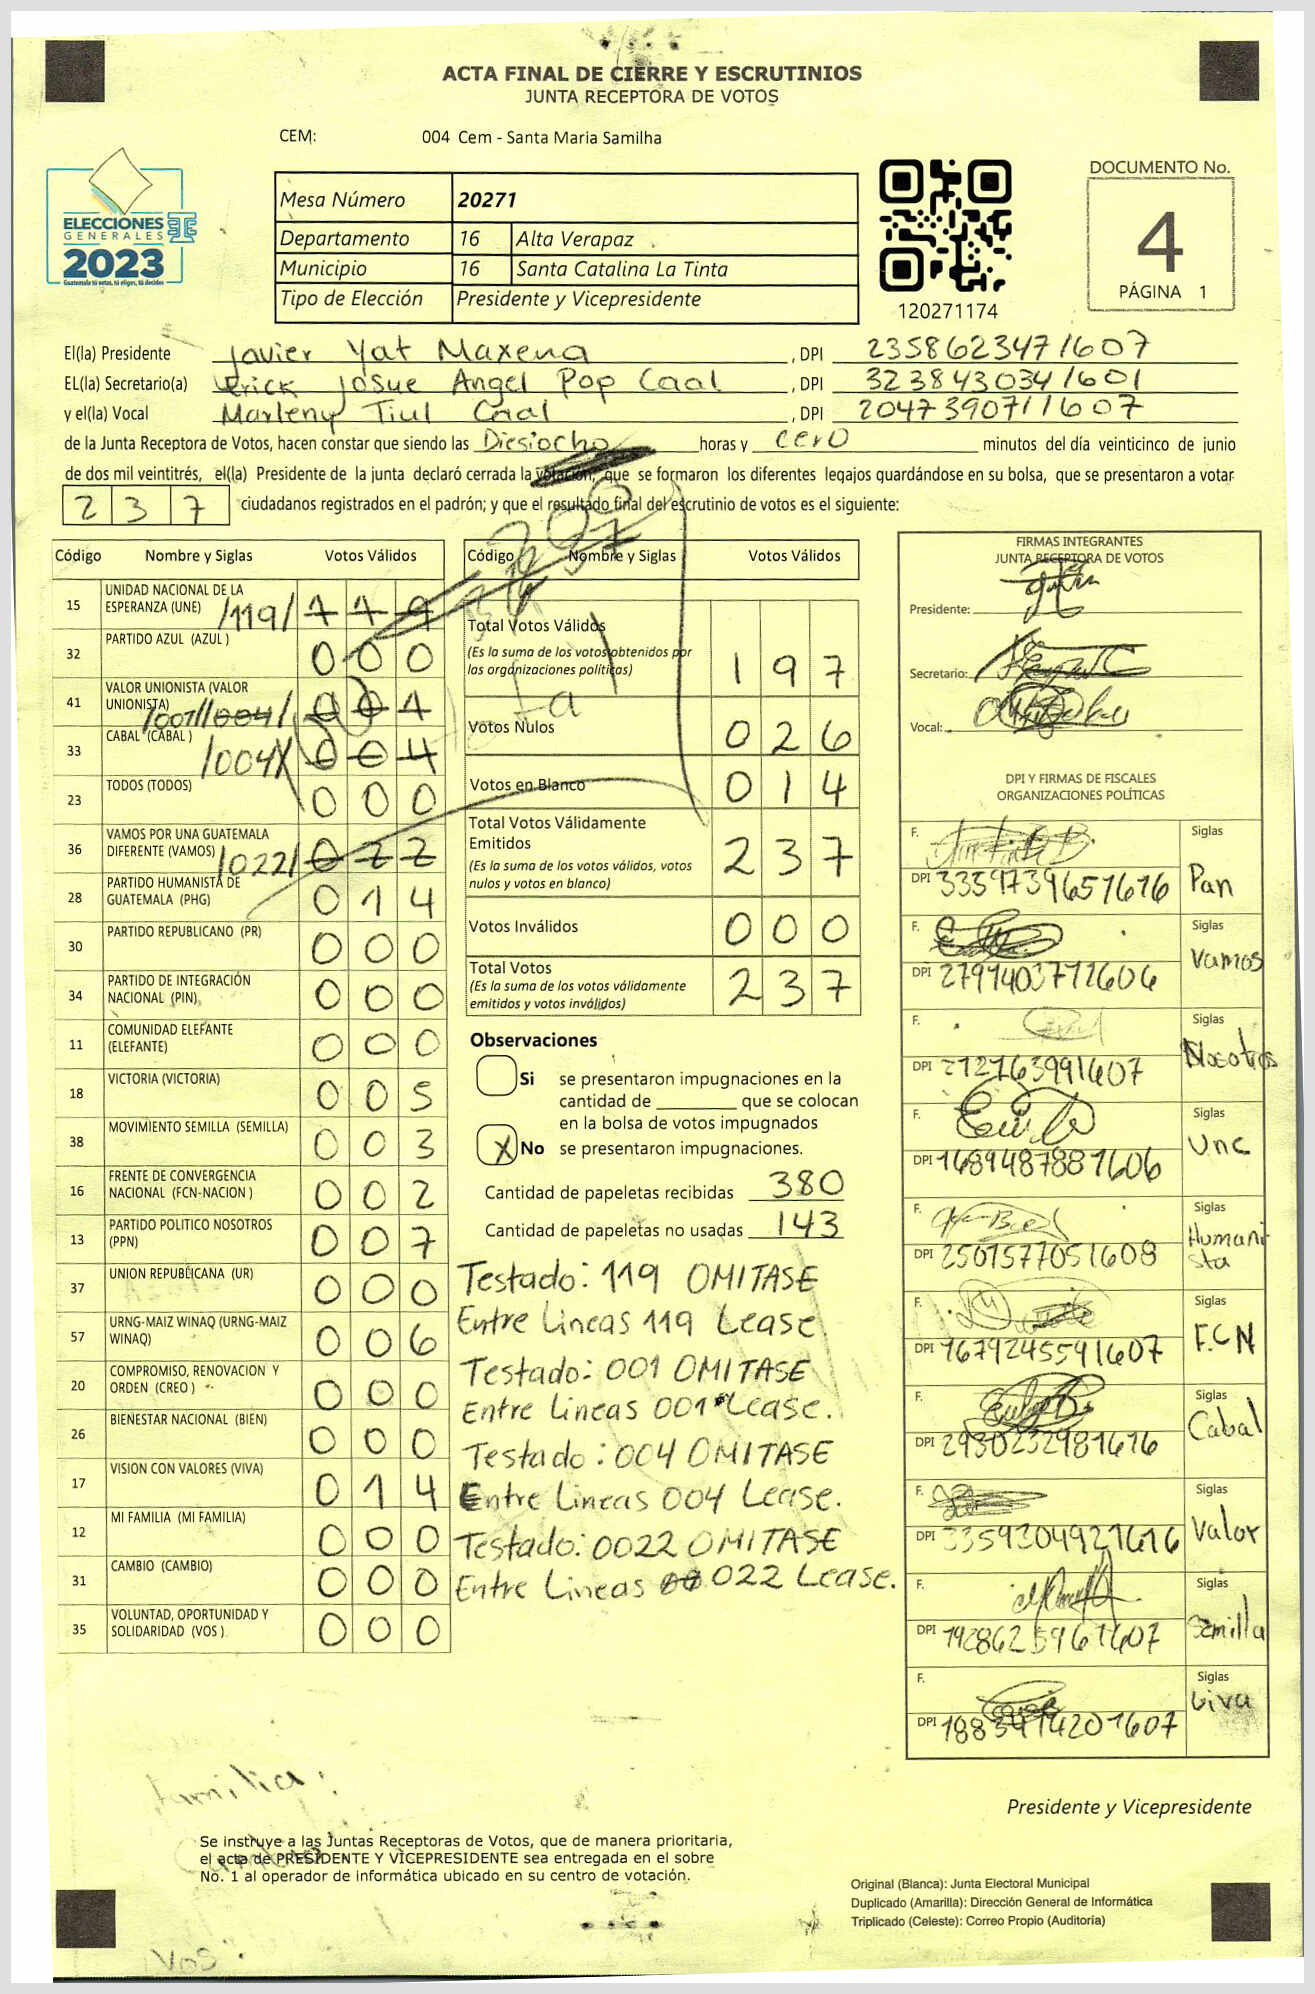 ACTA FINAL DE CIERRE Y ESCRUTINIOS
JUNTA RECEPTORA DE VOTOS
CEM: 004 Cem - Santa Maria Samilha
ELECCIONES
GENERALES
2023
Guatemala tú votas, tú eliges, tú decides
Mesa Número 20271
Departamento 16 Alta Verapaz
Municipio 16 Santa Catalina La Tinta
Tipo de Elección Presidente y Vicepresidente
120271174
DOCUMENTO No.
4
PÁGINA 1
El(la) Presidente Javier Yat Maxena , DPI 2358623471607
EL(la) Secretario(a) Erick Josue Angel Pop Caal , DPI 3238430341601
y el(la) Vocal Marleny Tiul Caal , DPI 2047390711607
de la Junta Receptora de Votos, hacen constar que siendo las Diesiocho horas y cero minutos del día veinticinco de junio
de dos mil veintitrés, el(la) Presidente de la junta declaró cerrada la votación, que se formaron los diferentes legajos guardándose en su bolsa, que se presentaron a votar
237 ciudadanos registrados en el padrón; y que el resultado final del escrutinio de votos es el siguiente:
Código Nombre y Siglas Votos Válidos
15 UNIDAD NACIONAL DE LA ESPERANZA (UNE) /119/ 119
32 PARTIDO AZUL (AZUL ) 000
41 VALOR UNIONISTA (VALOR UNIONISTA) /001//004/ 001
33 CABAL (CABAL ) /004X 004
23 TODOS (TODOS) 000
36 VAMOS POR UNA GUATEMALA DIFERENTE (VAMOS) /022/ 022
28 PARTIDO HUMANISTA DE GUATEMALA (PHG) 014
30 PARTIDO REPUBLICANO (PR) 000
34 PARTIDO DE INTEGRACIÓN NACIONAL (PIN) 000
11 COMUNIDAD ELEFANTE (ELEFANTE) 000
18 VICTORIA (VICTORIA) 005
38 MOVIMIENTO SEMILLA (SEMILLA) 003
16 FRENTE DE CONVERGENCIA NACIONAL (FCN-NACION ) 002
13 PARTIDO POLITICO NOSOTROS (PPN) 007
37 UNION REPUBLICANA (UR) 000
57 URNG-MAIZ WINAQ (URNG-MAIZ WINAQ) 006
20 COMPROMISO, RENOVACION Y ORDEN (CREO ) 000
26 BIENESTAR NACIONAL (BIEN) 000
17 VISION CON VALORES (VIVA) 014
12 MI FAMILIA (MI FAMILIA) 000
31 CAMBIO (CAMBIO) 000
35 VOLUNTAD, OPORTUNIDAD Y SOLIDARIDAD (VOS ) 000
Código Nombre y Siglas Votos Válidos
Total Votos Válidos
(Es la suma de los votos obtenidos por
las organizaciones políticas) 197
Votos Nulos 026
Votos en Blanco 014
Total Votos Válidamente
Emitidos
(Es la suma de los votos válidos, votos
nulos y votos en blanco) 237
Votos Inválidos 000
Total Votos
(Es la suma de los votos válidamente
emitidos y votos inválidos) 237
Observaciones
Si se presentaron impugnaciones en la
cantidad de ________ que se colocan
en la bolsa de votos impugnados
X No se presentaron impugnaciones.
Cantidad de papeletas recibidas 380
Cantidad de papeletas no usadas 143
Testado: 119 OMITASE
Entre Lineas 119 Lease
Testado: 001 OMITASE
Entre Lineas 001 Lease.
Testado: 004 OMITASE
Entre Lineas 004 Lease.
Testado: 0022 OMITASE
Entre Lineas 022 Lease.
FIRMAS INTEGRANTES
JUNTA RECEPTORA DE VOTOS
Presidente:
Secretario:
Vocal:
DPI Y FIRMAS DE FISCALES
ORGANIZACIONES POLÍTICAS
F. Siglas
DPI 3359739651616 Pan
F. Siglas
DPI 2791403711606 Vamos
F. Siglas
DPI 2727639991607 Nosotros
F. Siglas
DPI 1689487881606 Unc
F. Siglas
DPI 2501577051608 Humanista
F. Siglas
DPI 1679245591607 F.C.N
F. Siglas
DPI 2930232981616 Cabal
F. Siglas
DPI 3359204921616 Valor
F. Siglas
DPI 1928625961607 Semilla
F. Siglas
DPI 1883914201607 Viva
Presidente y Vicepresidente
Familia:
Se instruye a las Juntas Receptoras de Votos, que de manera prioritaria,
el acta de PRESIDENTE Y VICEPRESIDENTE sea entregada en el sobre
No. 1 al operador de informática ubicado en su centro de votación.
Original (Blanca): Junta Electoral Municipal
Duplicado (Amarilla): Dirección General de Informática
Triplicado (Celeste): Correo Propio (Auditoría)
Vos